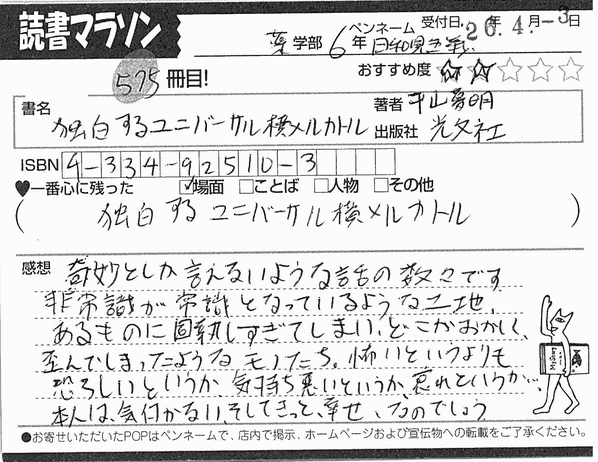 読書マラソン
薬学部 6年 ペンネーム 日和見主義 受付日. 26年 4.月-3日
575冊目!
おすすめ度 ☆☆☆☆☆
書名 独白するユニバーサル横メルカトル
著者 平山夢明
出版社 光文社
ISBN 4-334-92510-3
♥一番心に残った ☑場面 □ことば □人物 □その他
( 独白するユニバーサル横メルカトル )
感想 奇妙としか言えないような話の数々です
非常識が常識となっているような土地、
あるものに固執しすぎてしまい、どこかおかしく、
歪んでしまったようなモノたち。怖いというよりも
恐ろしいというか、気持ち悪いというか、哀れというか…、
本人は、気付かない、そしてきっと、幸せ、なのでしょう
●お寄せいただいたPOPはペンネームで、店内で掲示、ホームページおよび宣伝物への転載をご了承ください。